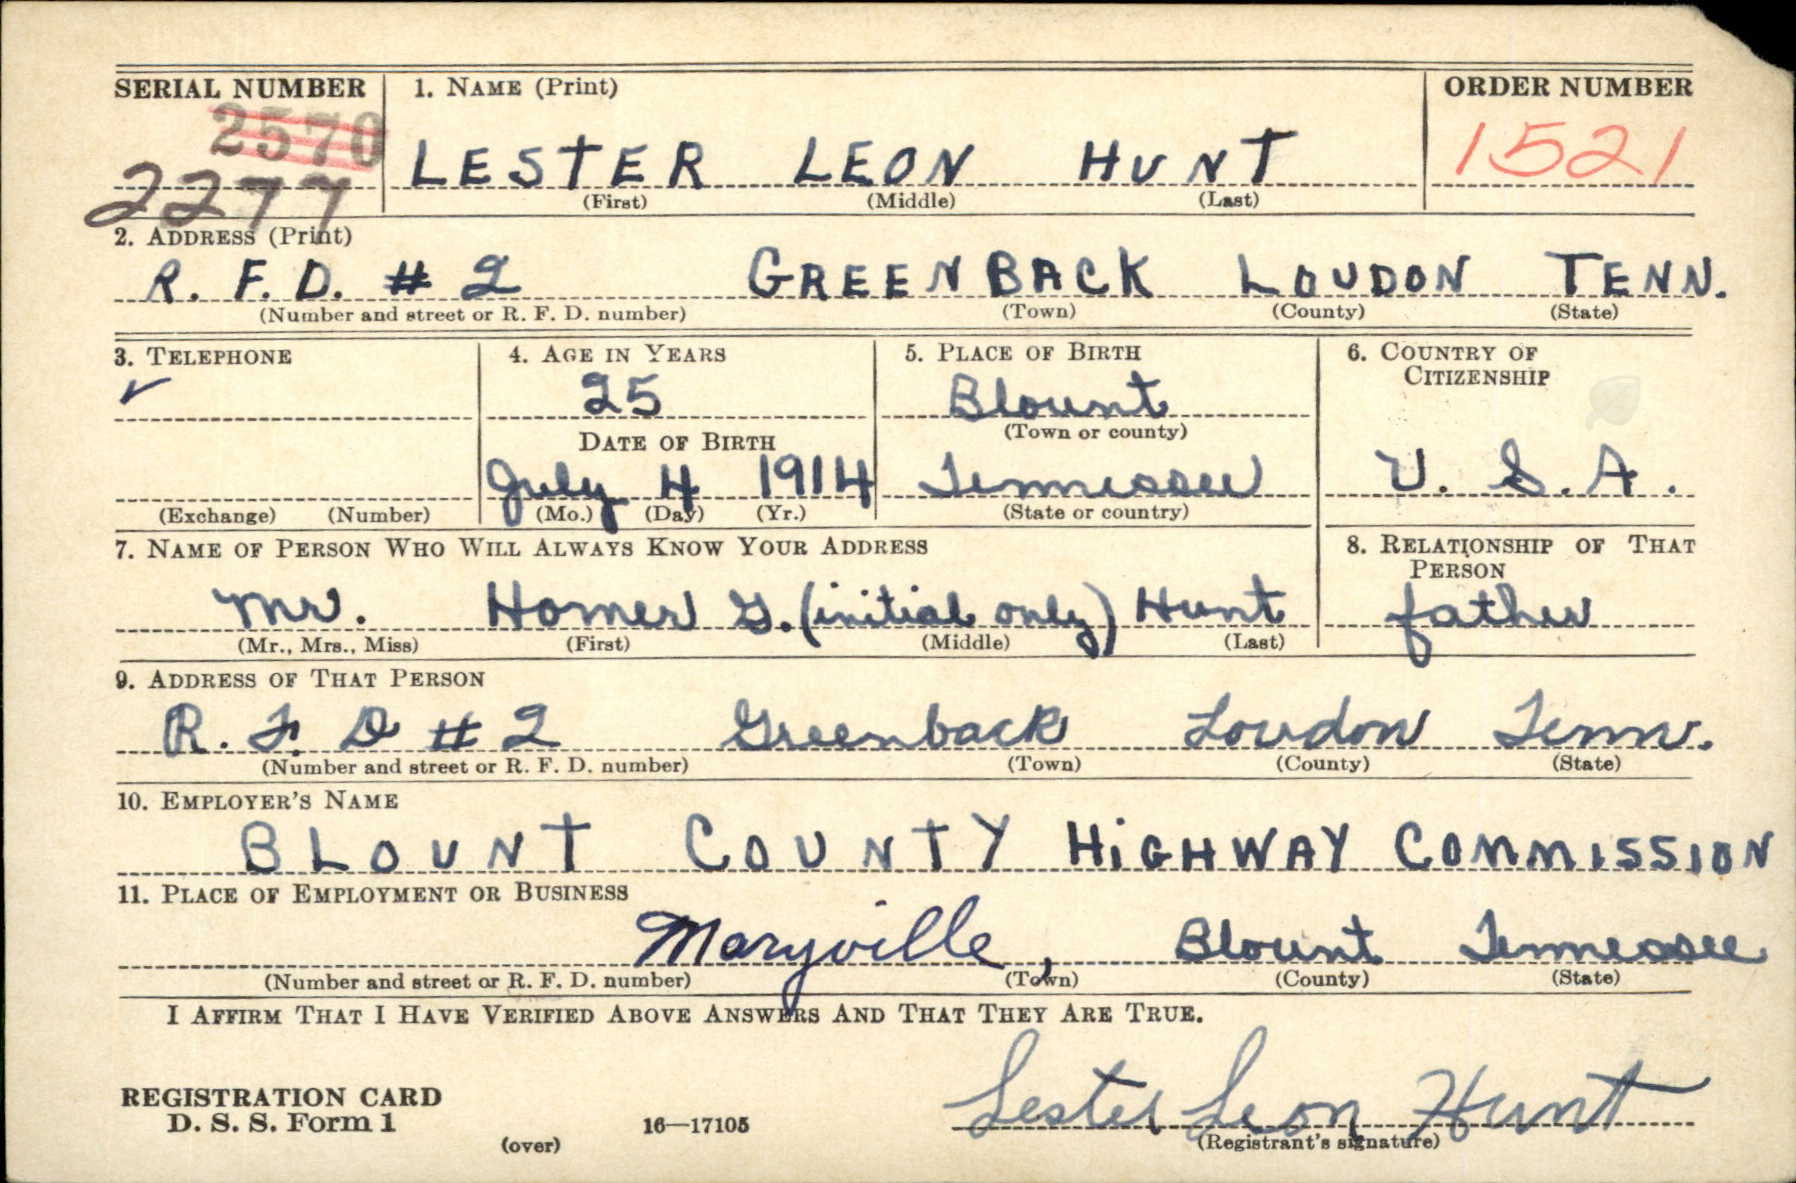 SERIAL NUMBER 1. NAME (Print) ORDER NUMBER
2570
2277 LESTER LEON HUNT 1521
(First) (Middle) (Last)
2. ADDRESS (Print)
R. F. D. # 2 GREENBACK LOUDON TENN.
(Number and street or R. F. D. number) (Town) (County) (State)
3. TELEPHONE 4. AGE IN YEARS 5. PLACE OF BIRTH 6. COUNTRY OF
CITIZENSHIP
✓ 25 Blount
(Town or county)
DATE OF BIRTH
July 4 1914 Tennessee U. S. A.
(Exchange) (Number) (Mo.) (Day) (Yr.) (State or country)
7. NAME OF PERSON WHO WILL ALWAYS KNOW YOUR ADDRESS 8. RELATIONSHIP OF THAT
PERSON
Mr. Homer G. (initial only) Hunt father
(Mr., Mrs., Miss) (First) (Middle) (Last)
9. ADDRESS OF THAT PERSON
R. F. D # 2 Greenback Loudon Tenn.
(Number and street or R. F. D. number) (Town) (County) (State)
10. EMPLOYER'S NAME
BLOUNT COUNTY HIGHWAY COMMISSION
11. PLACE OF EMPLOYMENT OR BUSINESS
Maryville, Blount Tennessee
(Number and street or R. F. D. number) (Town) (County) (State)
I AFFIRM THAT I HAVE VERIFIED ABOVE ANSWERS AND THAT THEY ARE TRUE.
REGISTRATION CARD
D. S. S. Form 1 16—17105 Lester Leon Hunt
(over) (Registrant's signature)